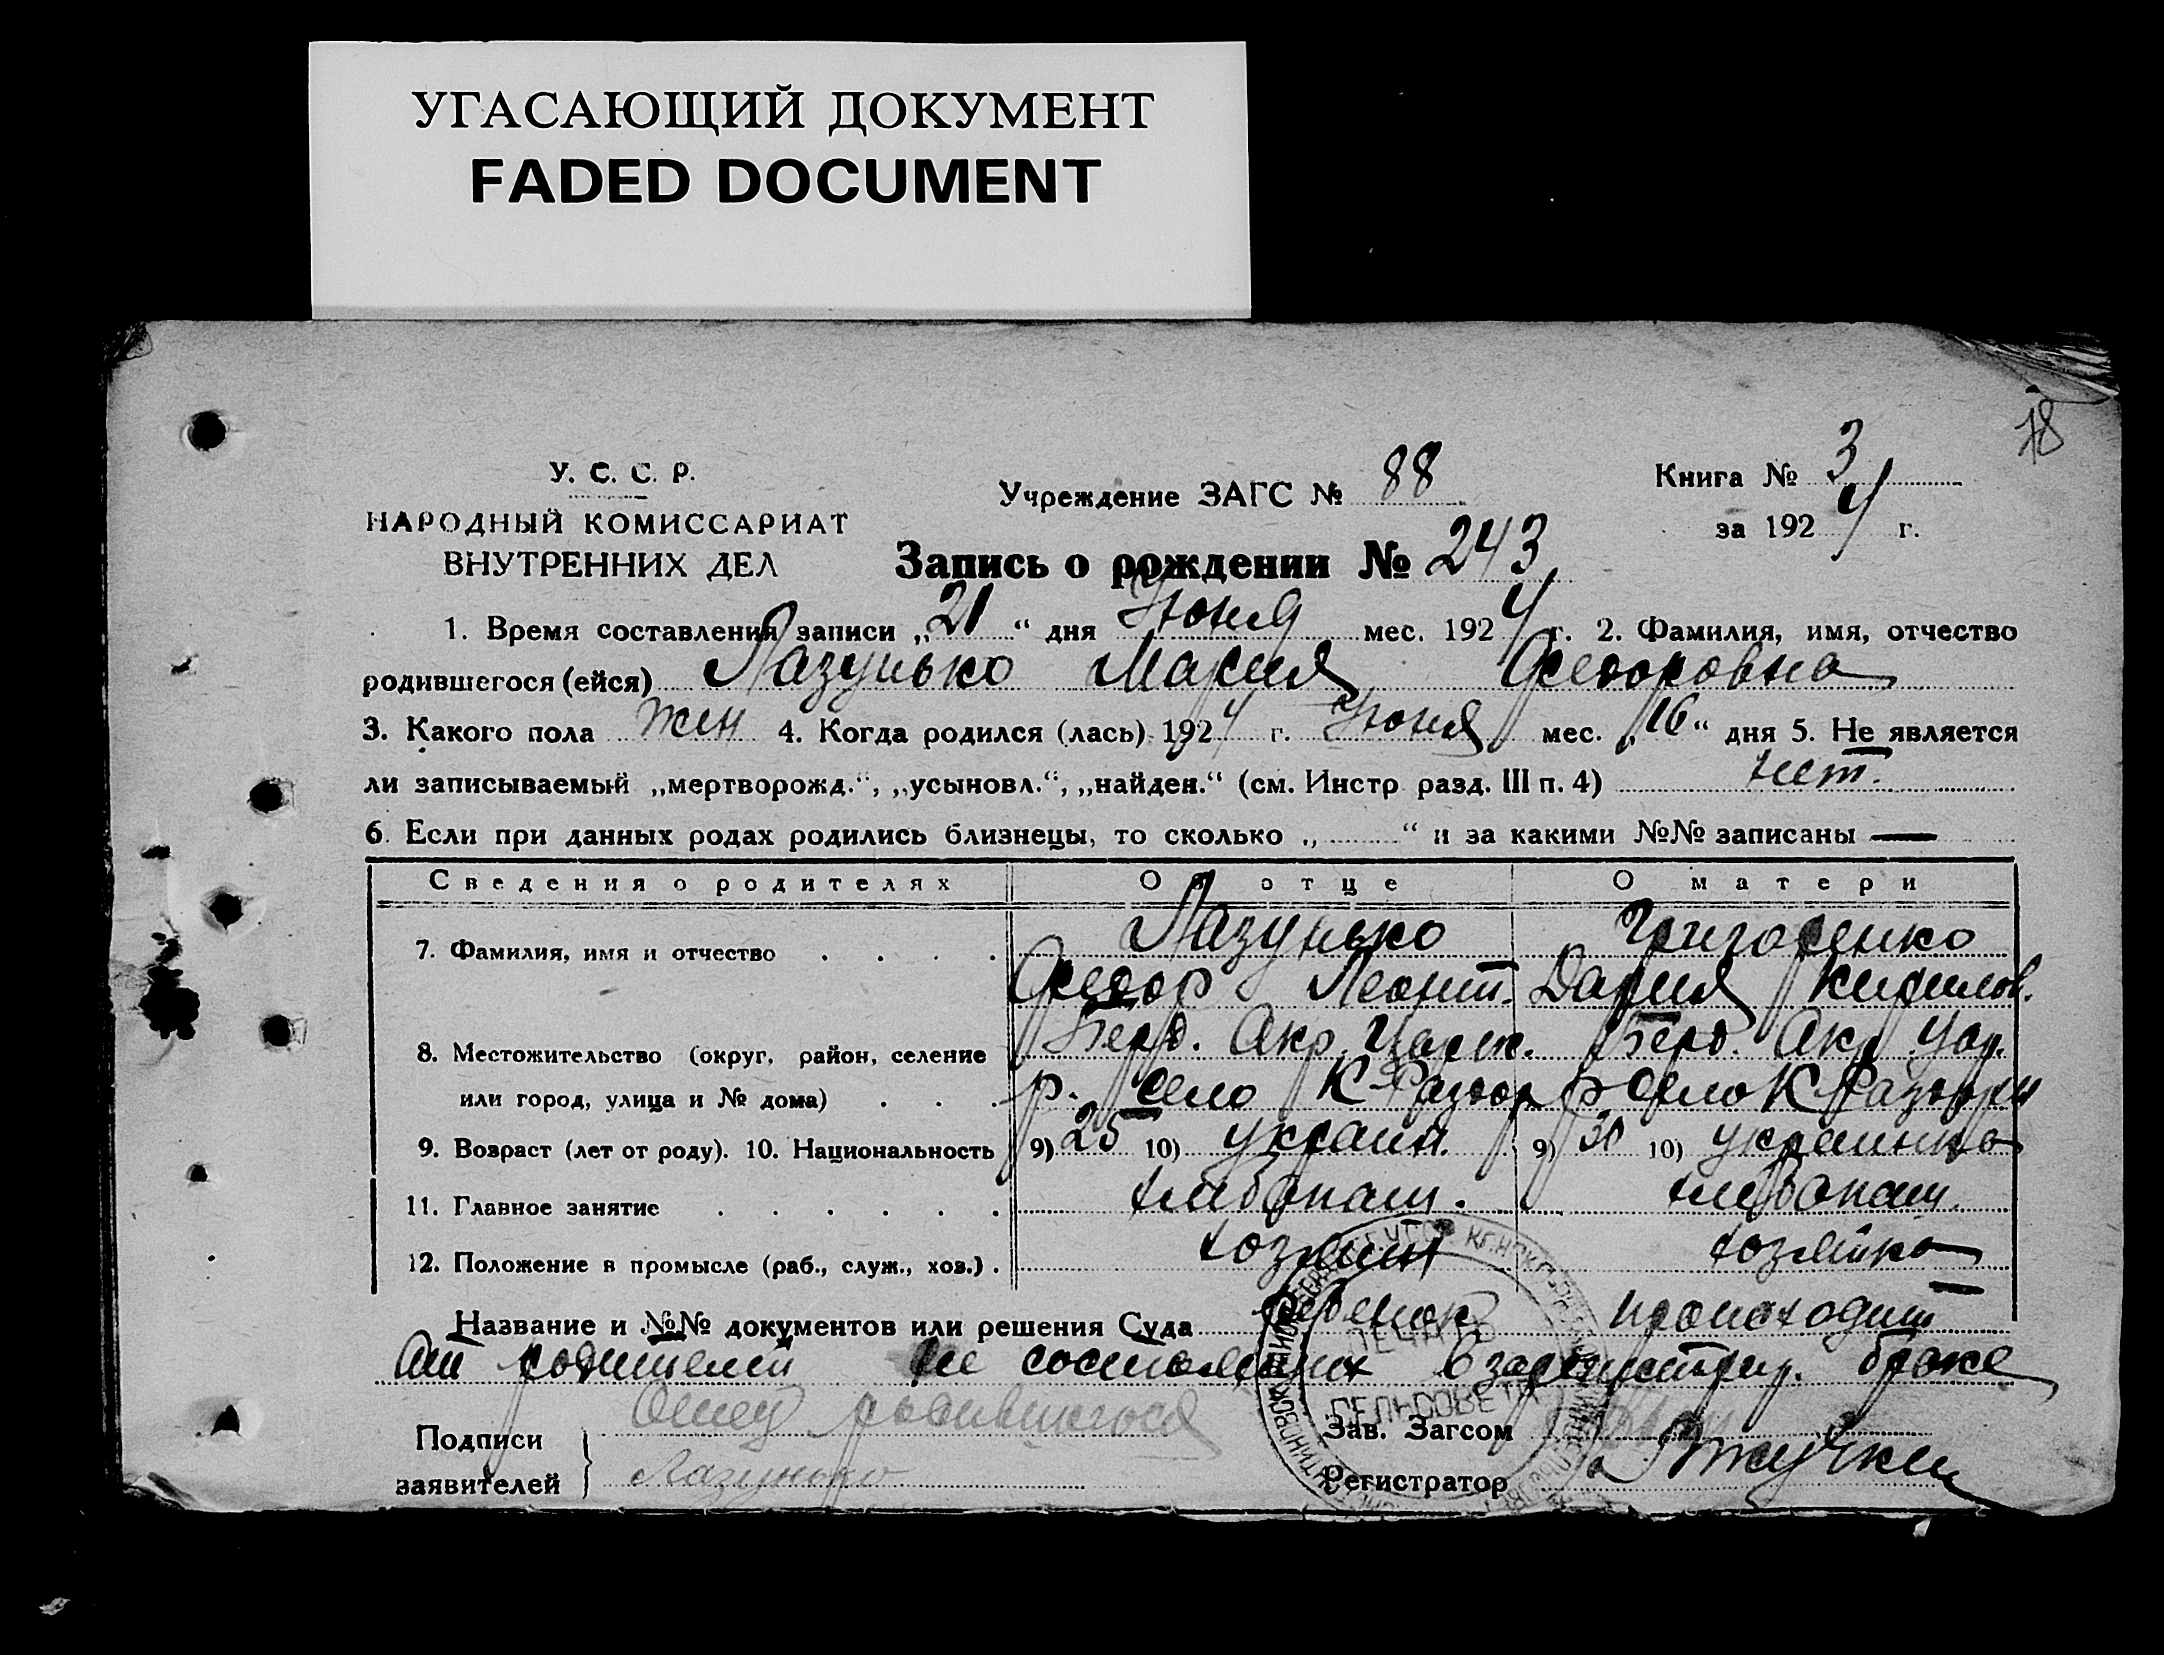 УГАСАЮЩИЙ ДОКУМЕНТ
FADED DOCUMENT
78
У. С. С. Р.
НАРОДНЫЙ КОМИССАРИАТ
ВНУТРЕННИХ ДЕЛ
Учреждение ЗАГС № 88
Книга № 3
за 1924 г.
Запись о рождении № 243
1. Время составления записи „21“ дня Июня мес. 1924 г. 2. Фамилия, имя, отчество
родившегося (ейся) Лазунько Мария Федоровна
3. Какого пола жен 4. Когда родился (лась) 1924 г. Июня мес. „16“ дня 5. Не является
ли записываемый „мертворожд.“, „усыновл.“, „найден.“ (см. Инстр разд. III п. 4) нет.
6. Если при данных родах родились близнецы, то сколько „ “ и за какими №№ записаны —
Сведения о родителях Об отце О матери
7. Фамилия, имя и отчество . . . . Лазунько Григоренко
Федор Леонт. Дария Кирилов.
8. Местожительство (округ, район, селение Берд. Окр. Царек. Берд. Окр Цар.
или город, улица и № дома) . . . р. село К Раздор р село К Раздоры
9. Возраст (лет от роду). 10. Национальность 9) 25 10) украин. 9) 30 10) украинка
11. Главное занятие . . . . . . хлебопаш. хлебопаш.
12. Положение в промысле (раб., служ., хоз.) . хозяин хозяйка
Название и №№ документов или решения Суда Ребенок происходит
от родителей не состоящих в зарегистрир. браке
Подписи Отец родившегося Зав. Загсом
заявителей Лазунько Регистратор
СЕЛЬСОВЕТА